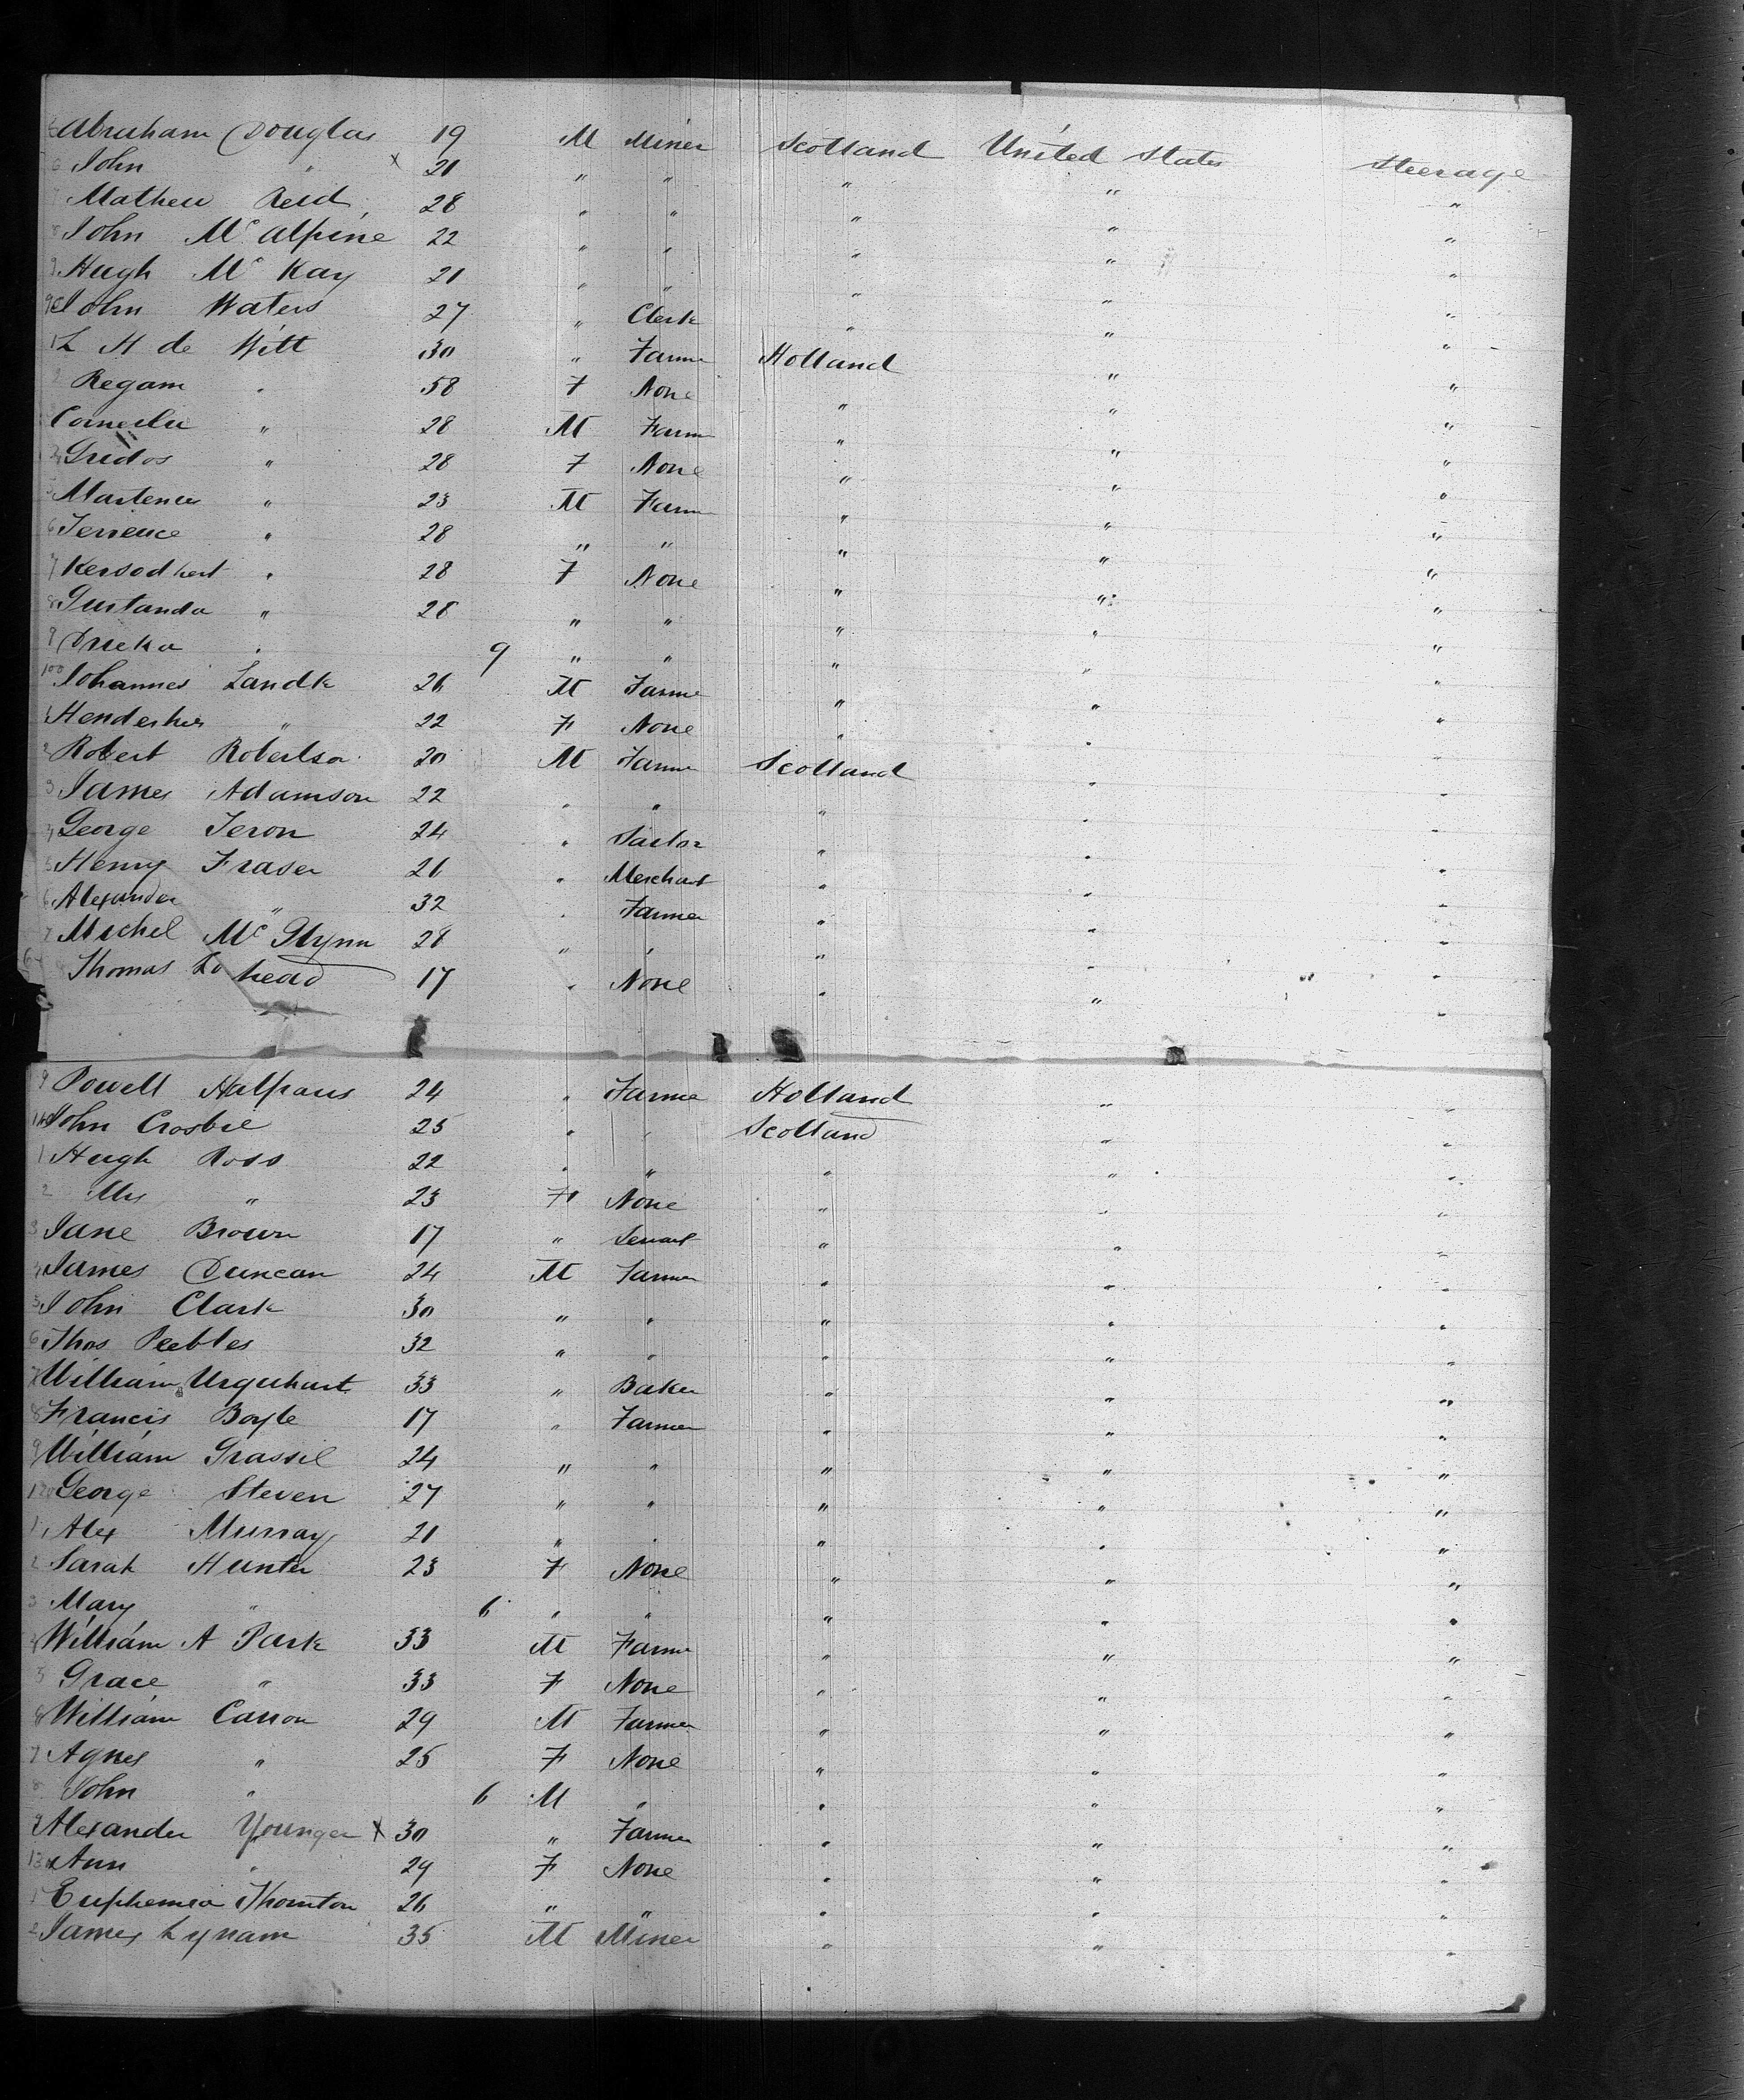 Abraham Douglas 19 M Miner Scotland United States Steerage
6 John " x 21 " " " " "
Mathew Reid 28 " " " " "
8 John Mc Alpine 22 " " " " "
9 Hugh Mc Kay 21 " " " " "
90 John Waters 27 " Clerk " " "
1 L H de Witt 30 " Farme Holland " "
2 Regam " 58 F None " " "
Cornelie " 28 M Farm " " "
4 Gridos " 28 F None " " "
5 Martenes " 23 M Farm " " "
6 Terrence " 28 " " " " "
7 Kersodhert " 28 F None " " "
8 Gustanda " 28 " " " " "
9 Drieka " 9 " " " " "
100 Johannes Landk 26 M Farme " " "
1 Henderkes " 22 F None " " "
2 Robert Robertson 20 M Farme Scotland " "
3 James Adamson 22 " " " " "
4 George Jeron 24 " Sailor " " "
5 Henry Fraser 26 " Merchant " " "
6 Alexander " 32 " Farmer " " "
7 Michel Mc Glynn 28 " " " " "
8 Thomas Lohead 17 " None " " "
9 Powell Halfraus 24 " Farme Holland " "
110 John Crosbie 25 " " Scotland " "
1 Hugh Ross 22 " " " " "
2 Mrs " 23 F None " " "
3 Jane Brown 17 " Servant " " "
4 James Duncan 24 M Farmer " " "
5 John Clark 30 " " " " "
6 Thos Peebles 32 " " " " "
7 William Urquhart 33 " Baker " " "
8 Francis Boyle 17 " Farmer " " "
9 William Grassil 24 " " " " "
120 George Steven 27 " " " " "
1 Alex Murray 21 " " " " "
2 Sarah Hunter 23 F None " " "
3 Mary " 6 " " " " "
4 William A Park 33 M Farme " " "
5 Grace " 33 F None " " "
6 William Carson 29 M Farmer " " "
7 Agnes " 25 F None " " "
8 John " 6 M " " " "
9 Alexander Younger x 30 " Farmer " " "
130 Ann " 29 F None " " "
1 Euphemia Thornton 26 " " " " "
2 James Lynam 35 M Miner " " "